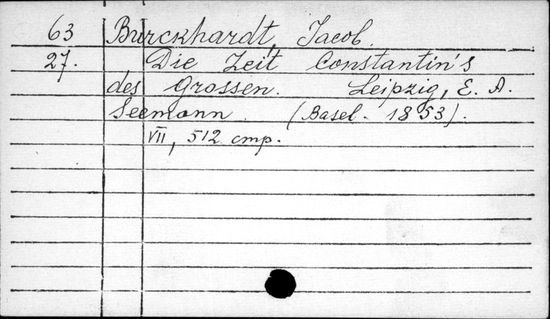 63 Burckhardt, Jacob.
27. Die Zeit Constantin's
des Grossen. Leipzig, E. A.
Seemann. (Basel. 1853).
VII, 512 стр.